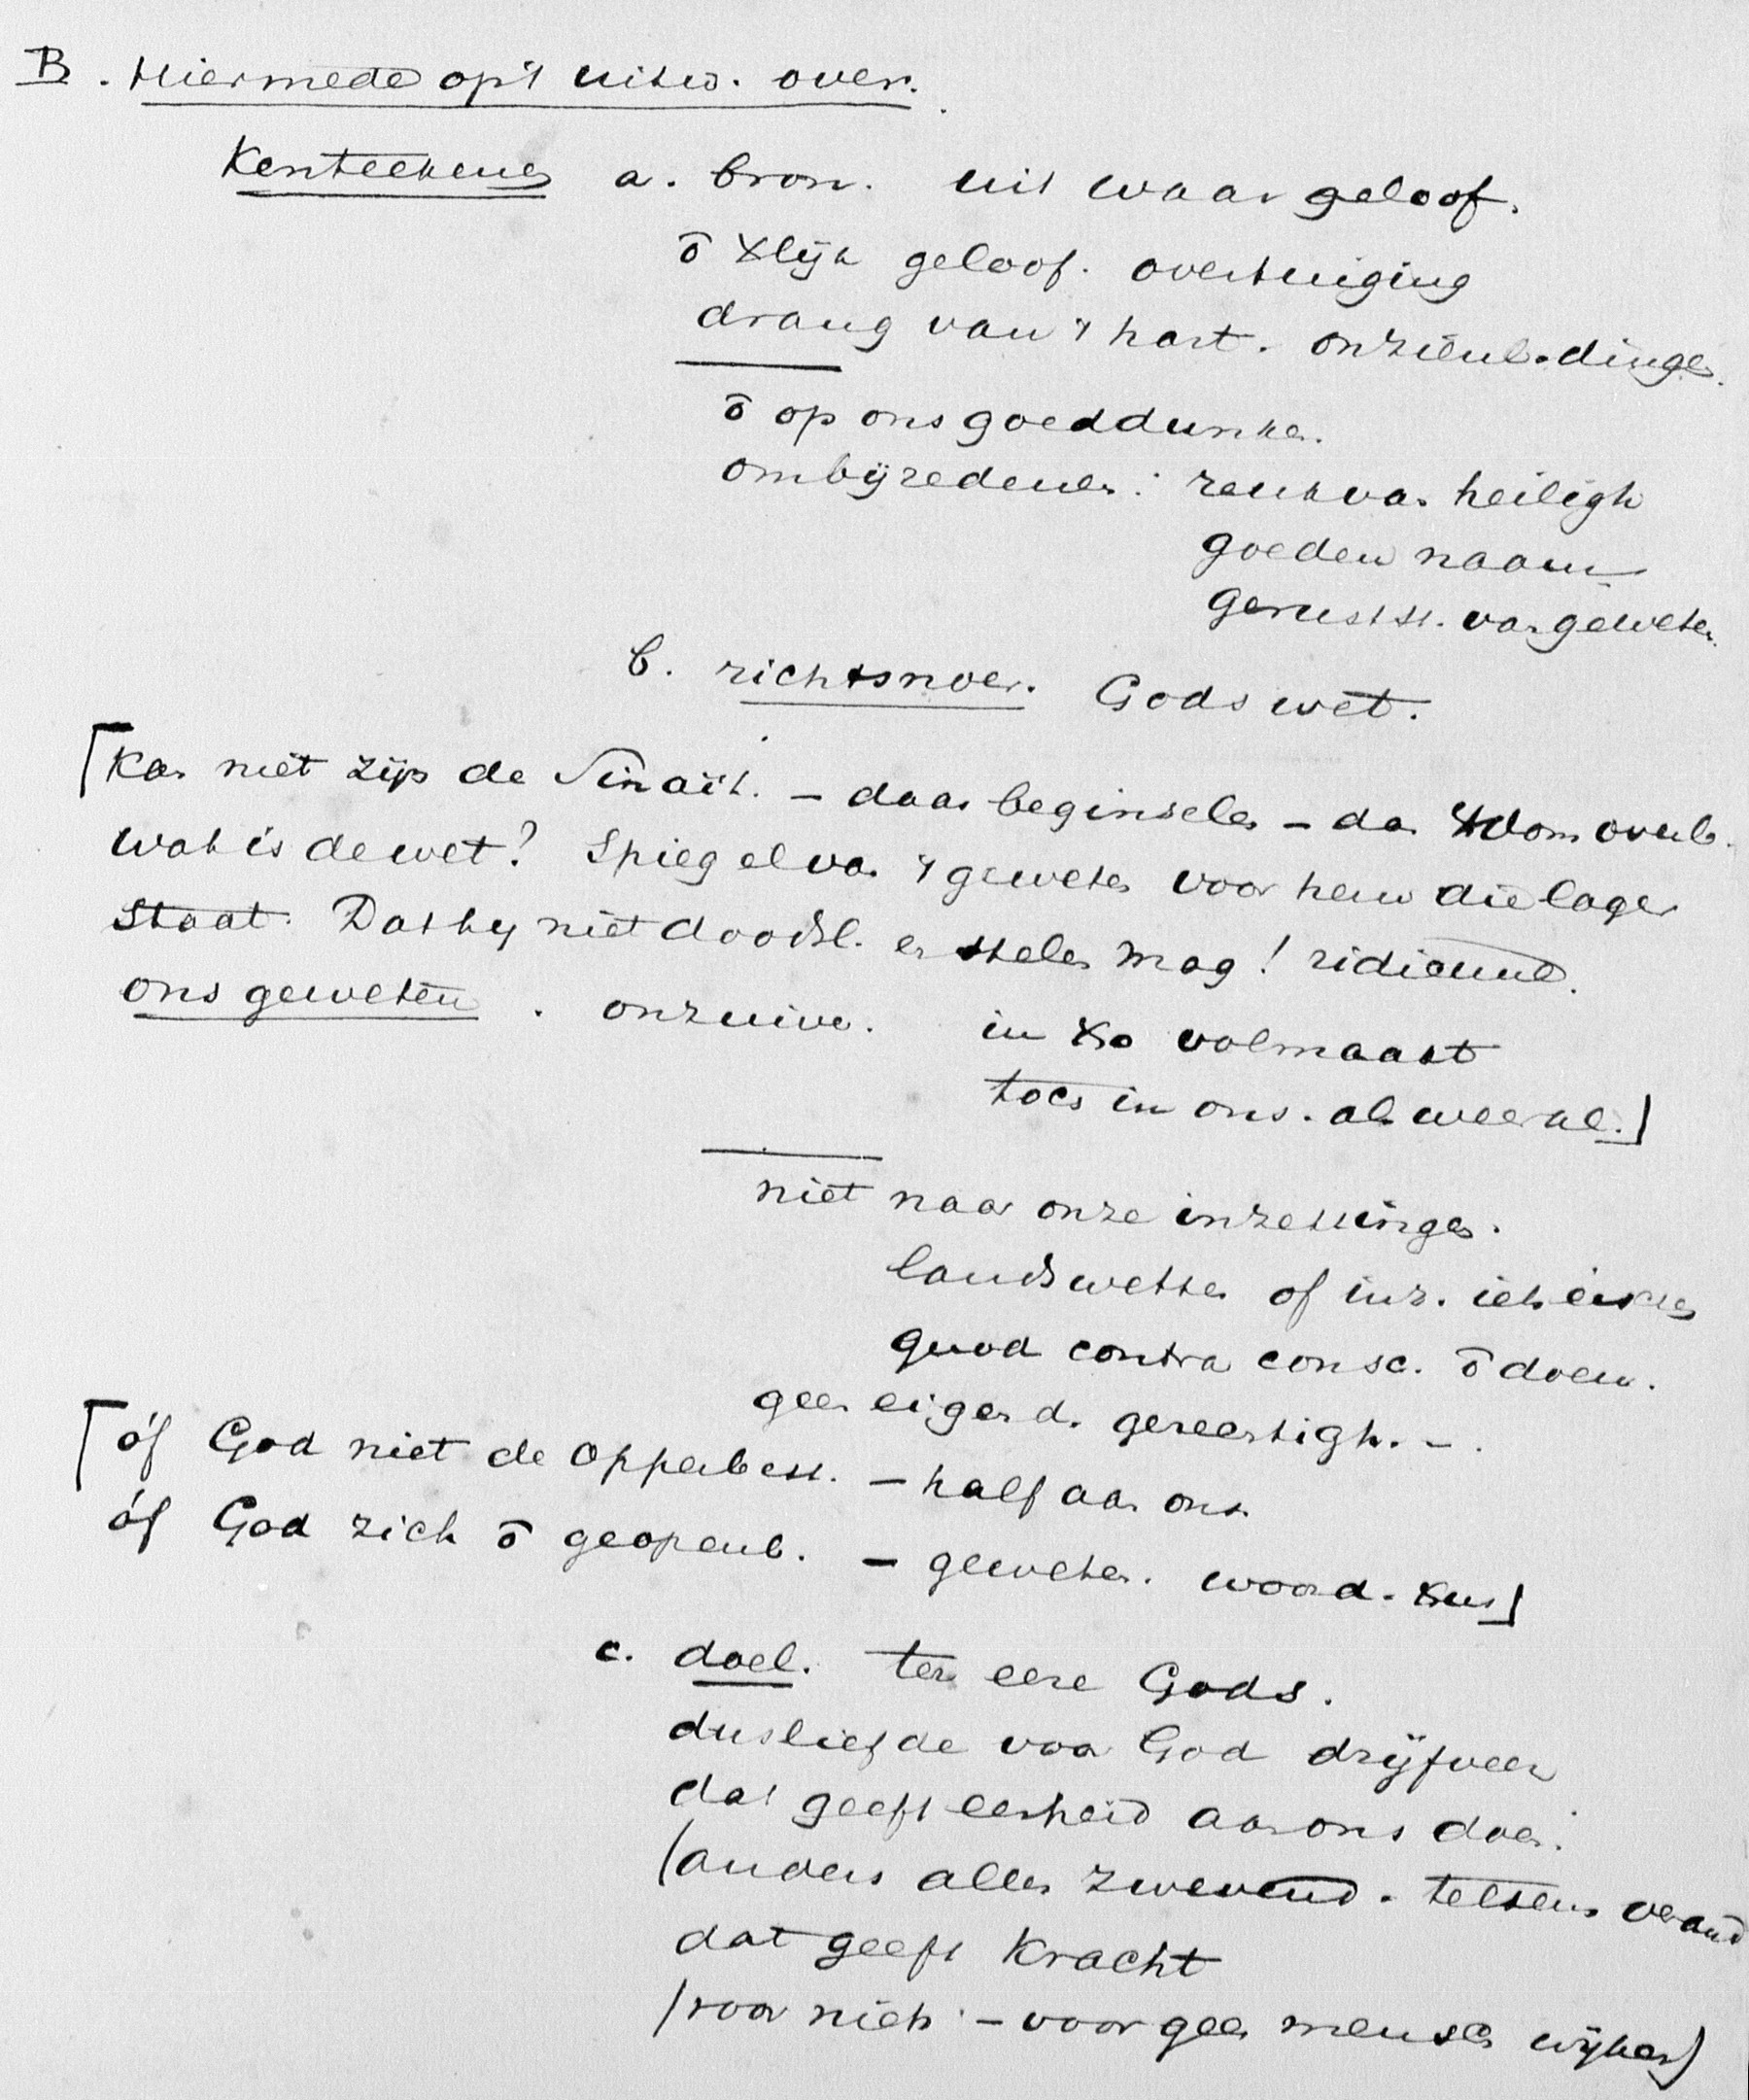 B. Hiermede op 't uitw. over.
Kenteekenen a. bron. uit waar geloof.
ō Xlijk geloof. overtuiging
drang van 't hart. onzienl. dingen.
ō op ons goeddunken.
om bijredenen: reuk van heiligh
goeden naam
gerustst. van geweten.
b. richtsnoer. Gods wet.
[Kan niet zijn de Sinaït. – daar beginselen – dan Xdom overb.
Wat is de wet? Spiegel van 't geweten voor hem die lager
staat. Dat hij niet doodsl. en stelen mag! ridicuul.
ons geweten. onzuiver. in Xo volmaakt
toch in ons. als weerkl.]
niet naar onze inzettingen.
landswetten of inz. iets eischen
quod contra consc. ō doen.
geen eigend. gerechtigh. –.
[óf God niet de Opperbest. – half aan ons.
óf God zich ō geopenb. – geweten. woord. Xus]
c. doel. ter eere Gods.
dus liefde voor God drijfveer
dat geeft eenheid aan ons doen.
(anders alles zwevend. telkens verand
dat geeft Kracht
(voor niets – voor geen menschen wijken)